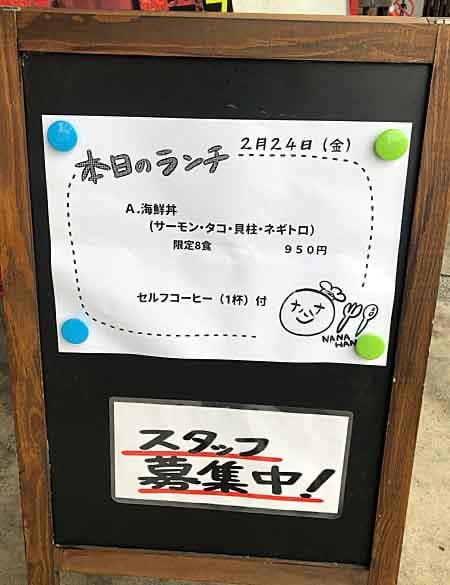 本日のランチ 2月24日(金)
A.海鮮丼
(サーモン・タコ・貝柱・ネギトロ)
限定8食 950円
セルフコーヒー(1杯)付
ナナ
NANA
HAN
スタッフ
募集中!